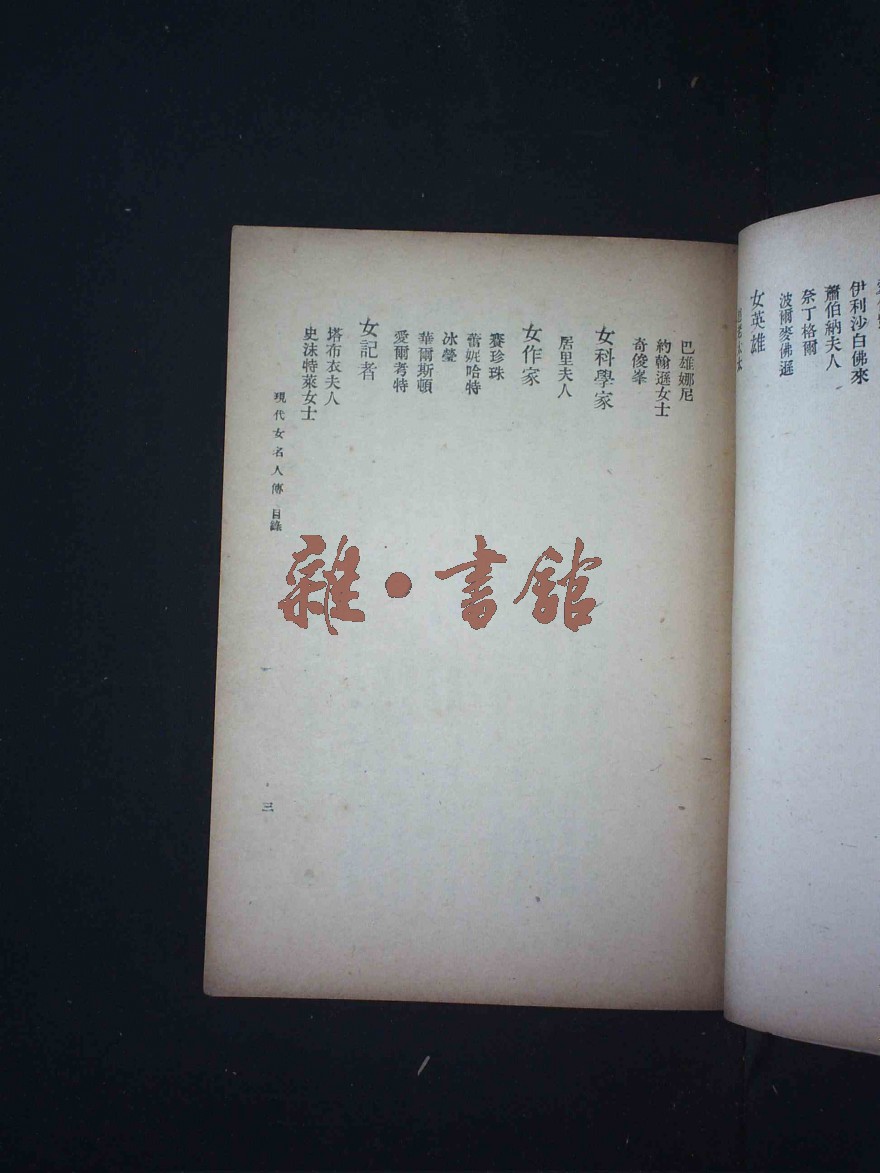 伊利沙白佛來
蕭伯納夫人
奈丁格爾
波爾麥佛遜
女英雄
巴雄娜尼
約翰遜女士
奇俊峯
女科學家
居里夫人
女作家
賽珍珠
蕾妮哈特
冰瑩
華爾斯頓
愛爾考特
女記者
塔布衣夫人
史沫特萊女士
現代女名人傳 目錄
三
雜·書館